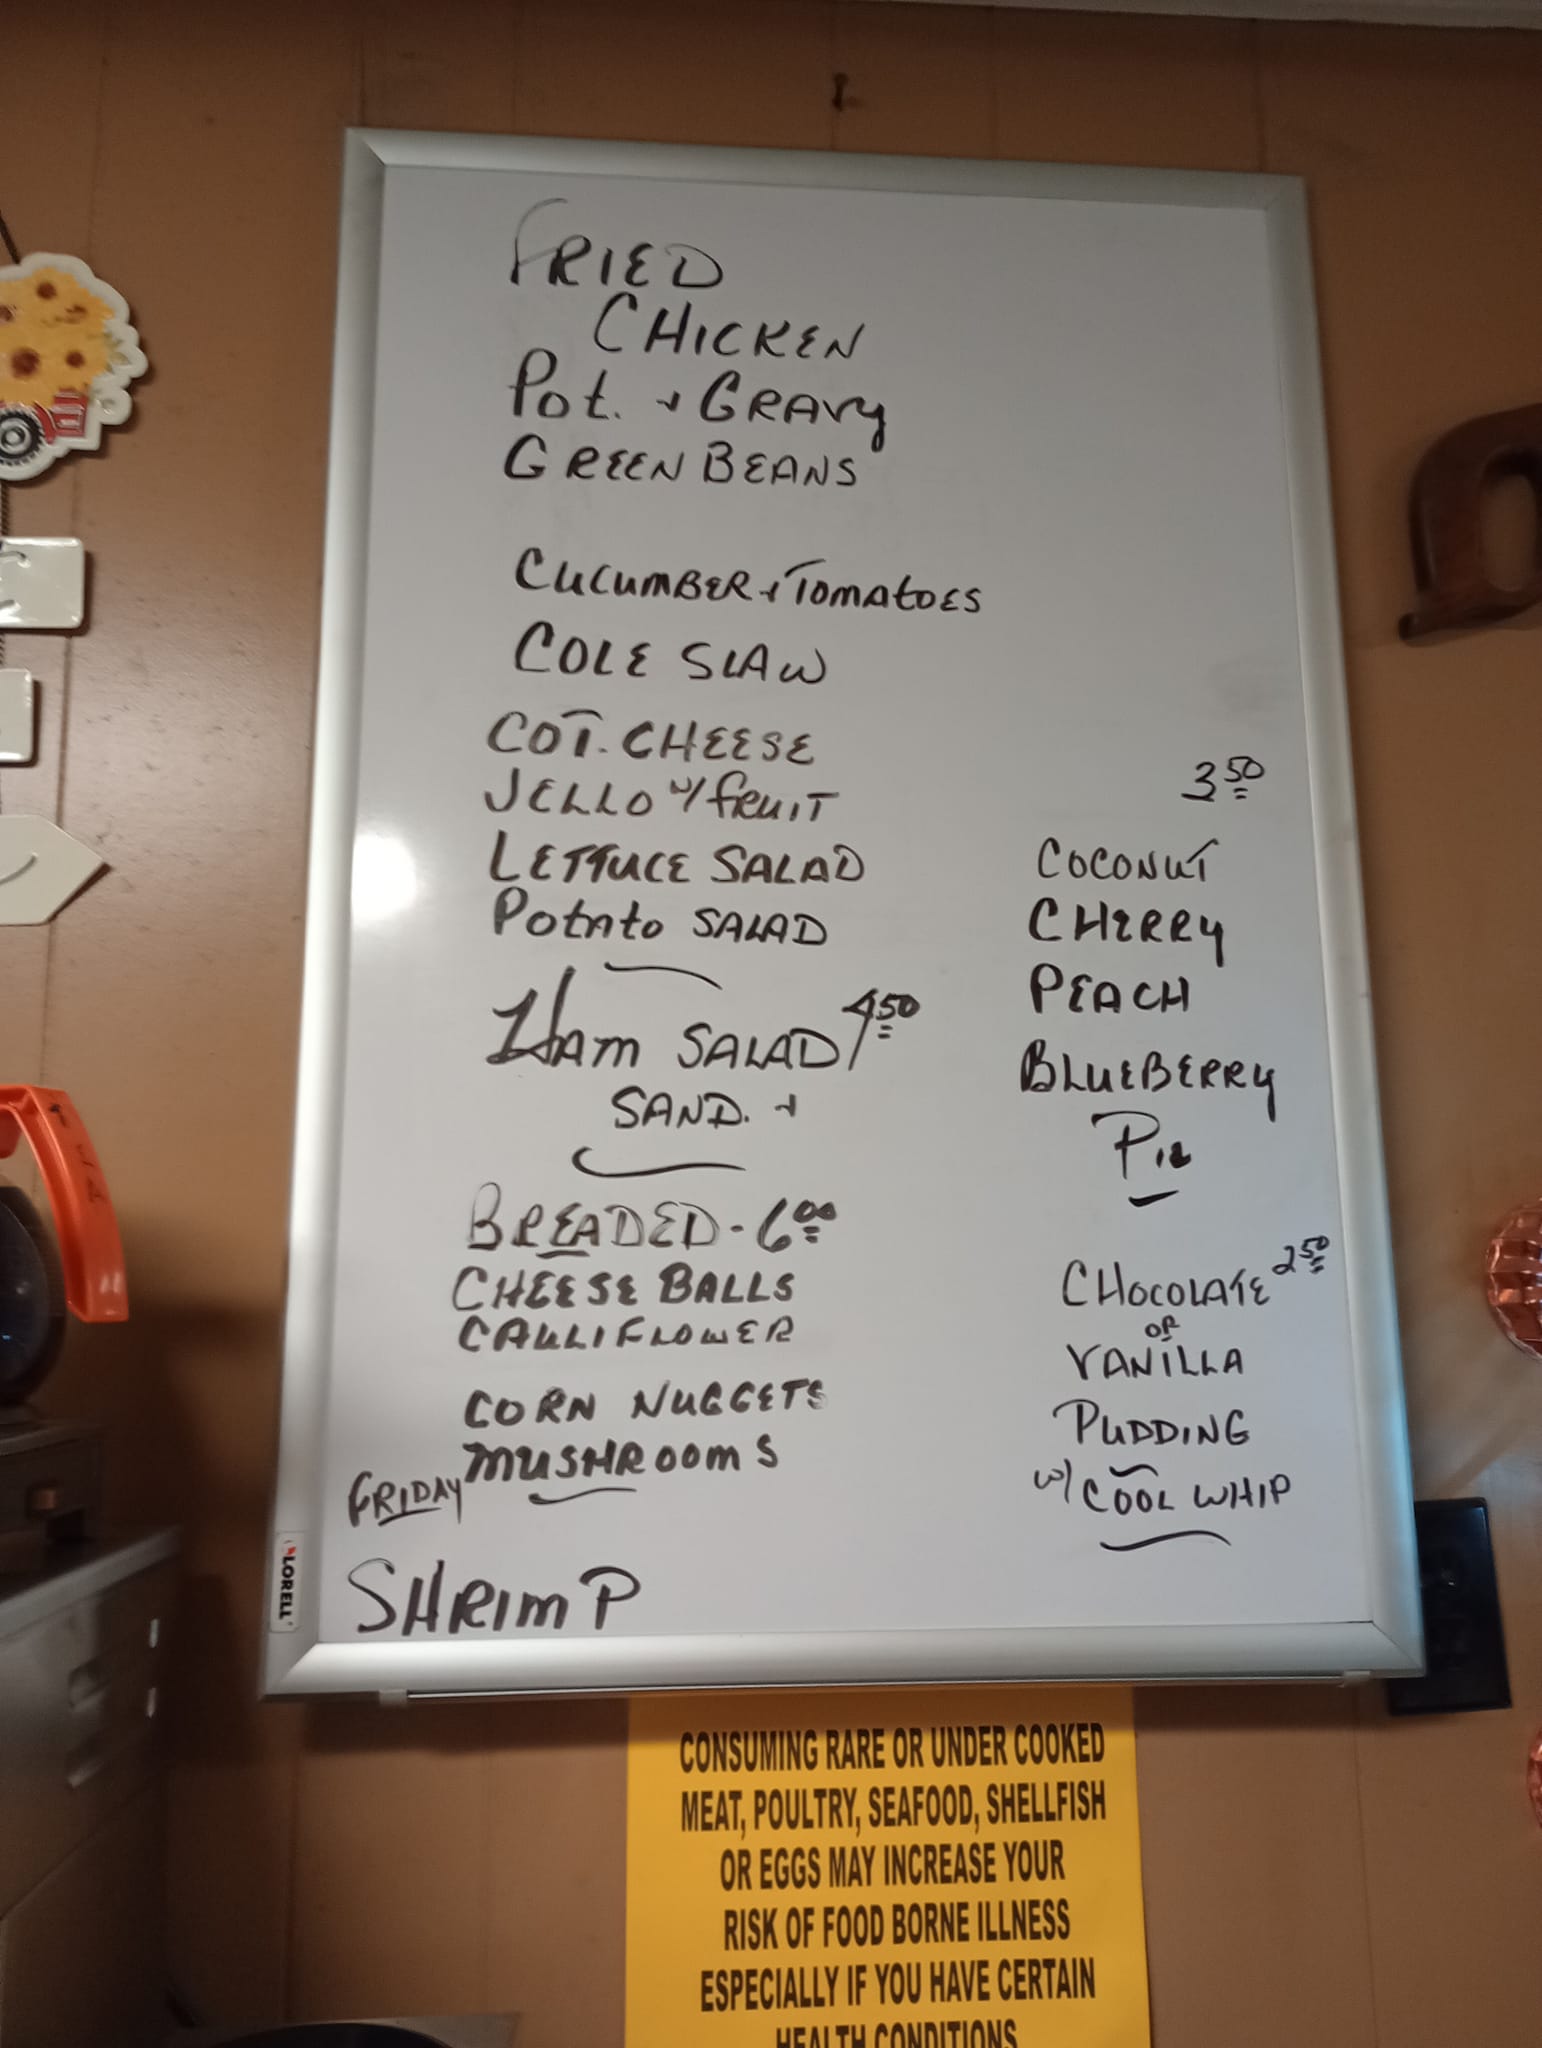 FRIED
CHICKEN
Pot. + GRAVY
GREEN BEANS
CUCUMBER + TOMATOES
COLE SLAW
COT. CHEESE
JELLO W/ FRUIT
LETTUCE SALAD
POTATO SALAD
HAM SALAD 4.50
SAND. +
BREADED - 6.00
CHEESE BALLS
CAULIFLOWER
CORN NUGGETS
MUSHROOMS
FRIDAY
SHRIMP
3.50
COCONUT
CHERRY
PEACH
BLUEBERRY
PIE
CHOCOLATE 2.50
OR
VANILLA
PUDDING
W/ COOL WHIP
LORELL
CONSUMING RARE OR UNDER COOKED
MEAT, POULTRY, SEAFOOD, SHELLFISH
OR EGGS MAY INCREASE YOUR
RISK OF FOOD BORNE ILLNESS
ESPECIALLY IF YOU HAVE CERTAIN
HEALTH CONDITIONS